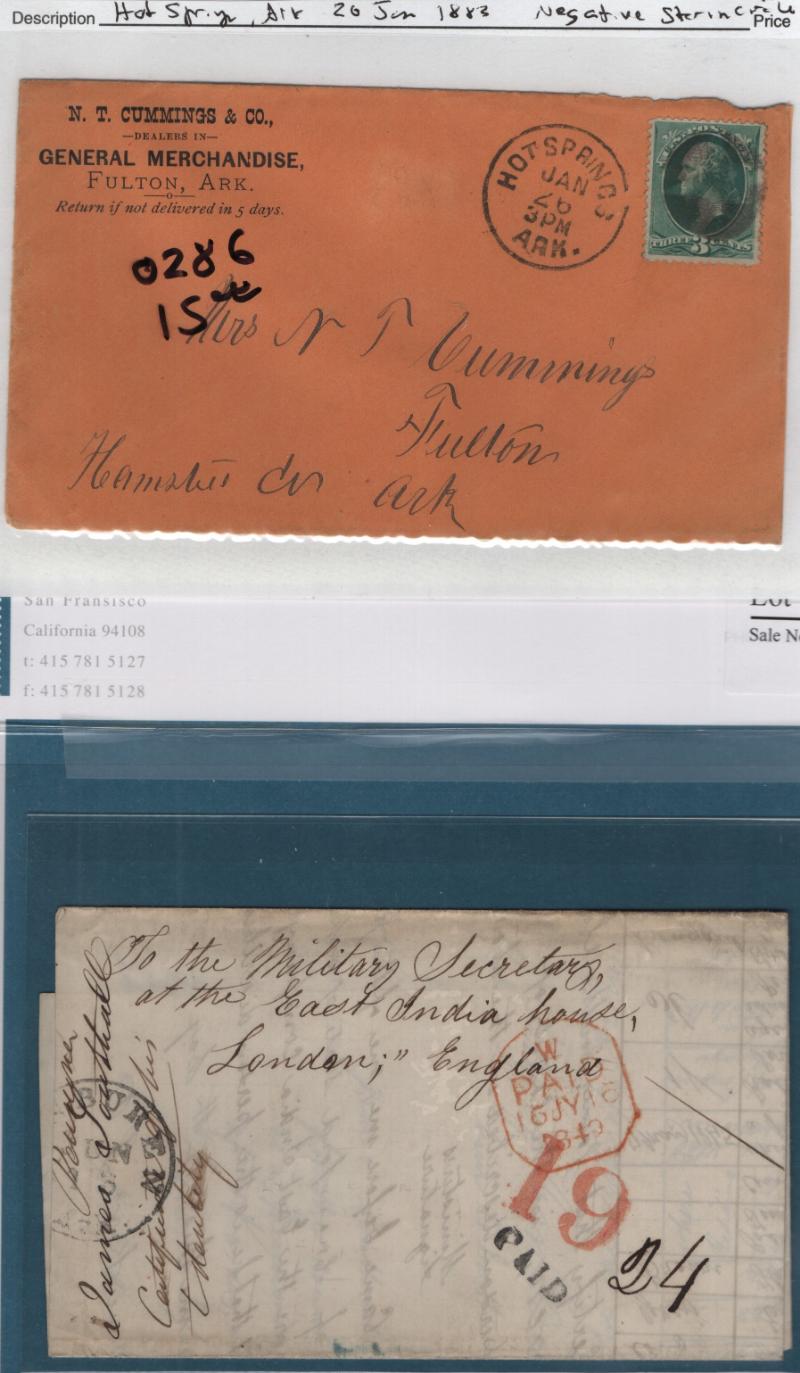 Description Hot Springs, Ark 26 Jan 1883 Negative Star in Circle Price
N. T. CUMMINGS & CO.,
—DEALERS IN—
GENERAL MERCHANDISE,
FULTON, ARK.
Return if not delivered in 5 days.
HOT SPRINGS
JAN
26
3PM
ARK.
THREE 3 CENTS
0286
15
Mrs N T Cummings
Fulton
Hempsted Co Ark
San Fransisco
California 94108
t: 415 781 5127
f: 415 781 5128
Lot
Sale No
To the Military Secretary,
at the East India house,
London;" England
W
PAID
16JY16
1849
19
PAID
24
James Southall
Pensioner
Certificate
his